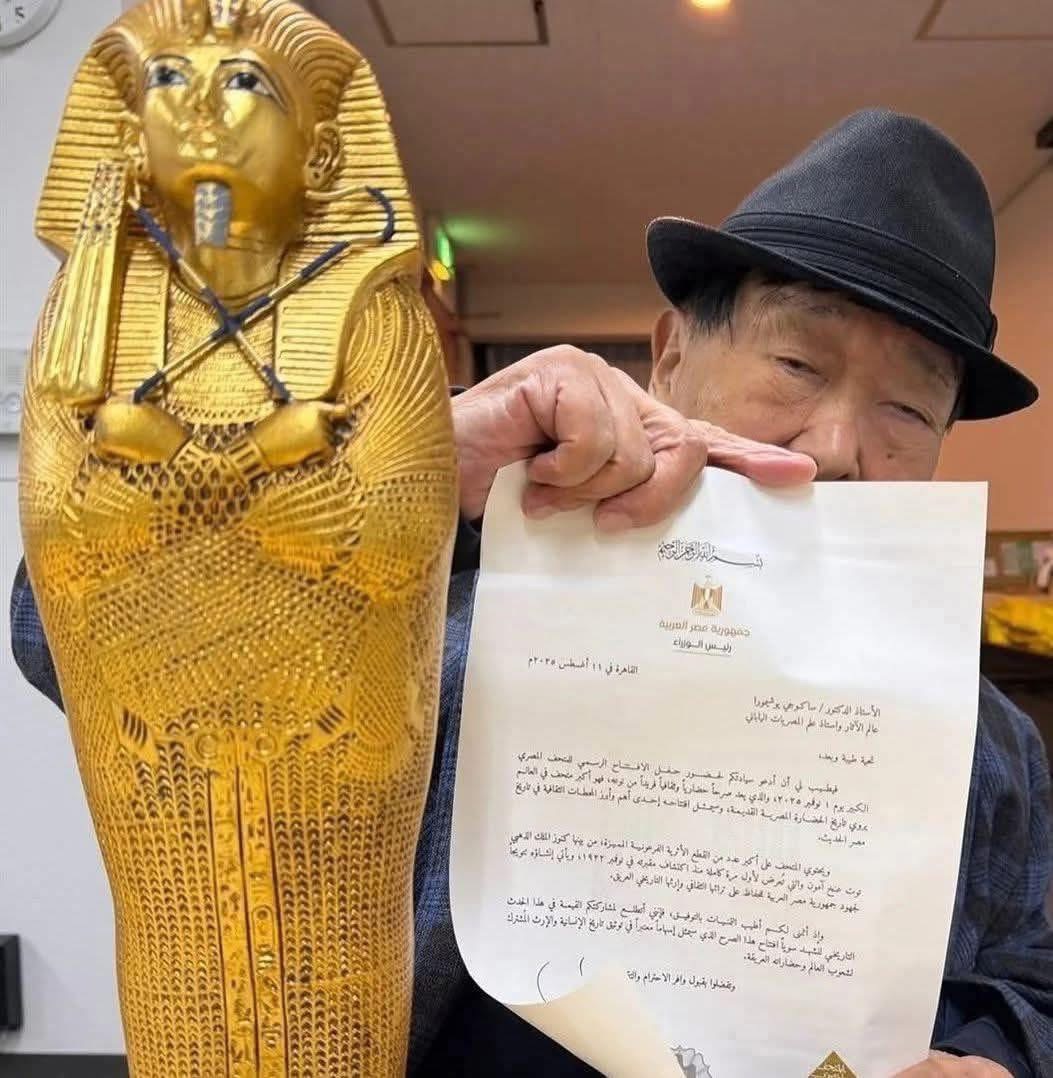 بسم الله الرحمن الرحيم
جمهورية مصر العربية
رئيس الوزراء
القاهرة في ١١ أغسطس ٢٠٢٥م
الأستاذ الدكتور / ساكوجي يوشيمورا
عالم الآثار وأستاذ علم المصريات الياباني
تحية طيبة وبعد،
فيطيب لي أن أدعو سيادتكم لحضور حفل الافتتاح الرسمي للمتحف المصري
الكبير يوم ١ نوفمبر ٢٠٢٥، والذي يعد صرحاً حضارياً وثقافياً فريداً من نوعه، فهو أكبر متحف في العالم
يروي تاريخ الحضارة المصرية القديمة، وسيمثل افتتاحه إحدى أهم وأبرز المحطات الثقافية في تاريخ
مصر الحديث.
ويحتوي المتحف على أكبر عدد من القطع الأثرية الفرعونية المميزة، من بينها كنوز الملك الذهبي
توت عنخ آمون والتي تُعرض لأول مرة كاملة منذ اكتشاف مقبرته في نوفمبر ١٩٢٢، ويأتي إنشاؤه تتويجاً
لجهود جمهورية مصر العربية للحفاظ على تراثها الثقافي وإرثها التاريخي العريق.
وإذ أتمنى لكم أطيب التمنيات بالتوفيق، فإنني أتطلع لمشاركتكم القيمة في هذا الحدث
التاريخي لنشهد سوياً افتتاح هذا الصرح الذي سيمثل إسهاماً معتبراً في توثيق تاريخ الإنسانية والإرث المشترك
لشعوب العالم وحضاراته العريقة.
وتفضلوا بقبول وافر الاحترام